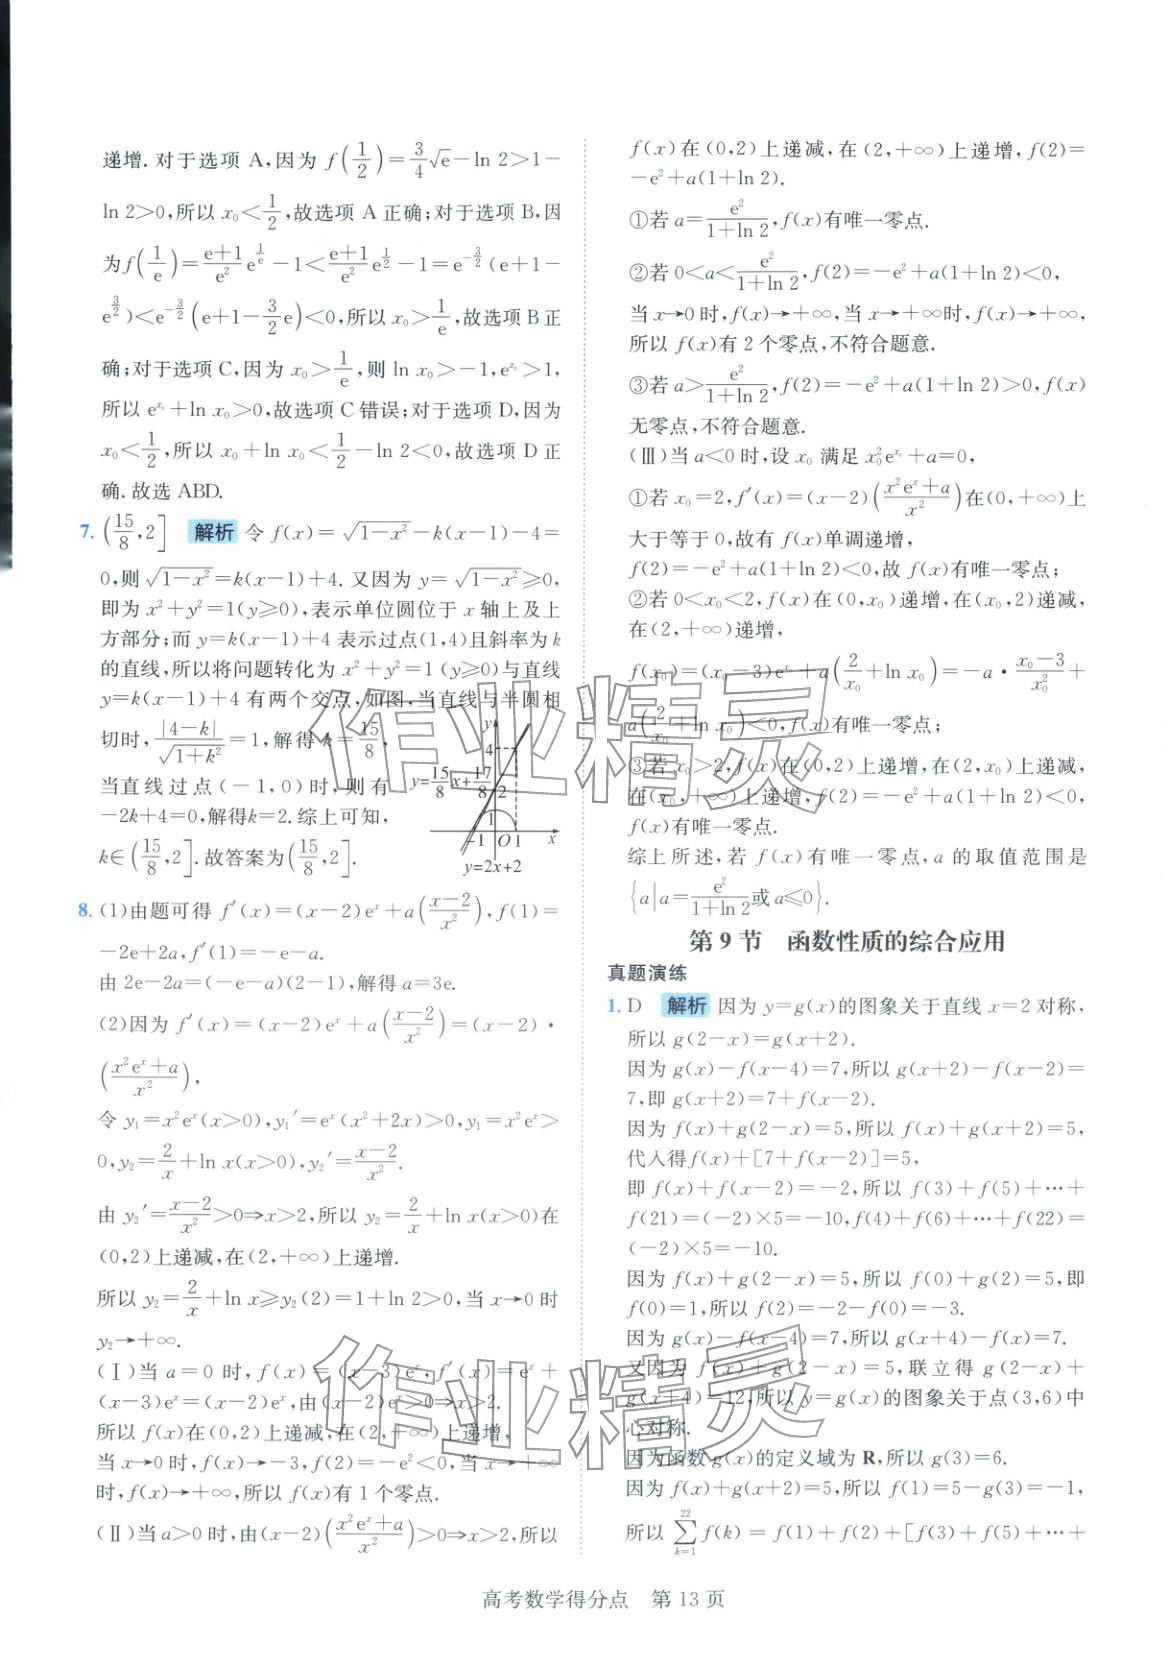 递增.对于选项 A,因为 f(1/2)=3/4√e-ln 2>1-
ln 2>0,所以 x₀<1/2,故选项 A 正确;对于选项 B,因
为f(1/e)=(e+1)/e² e^(1/e)-1<(e+1)/e² e^(1/2)-1=e^(-3/2)(e+1-
e^(3/2))<e^(-3/2)(e+1-3/2e)<0,所以 x₀>1/e,故选项 B 正
确;对于选项 C,因为 x₀>1/e,则 ln x₀>-1,e^(x₀)>1,
所以 e^(x₀)+ln x₀>0,故选项 C 错误;对于选项 D,因为
x₀<1/2,所以 x₀+ln x₀<1/2-ln 2<0,故选项 D 正
确.故选 ABD.
7. (15/8,2] 解析 令 f(x)=√(1-x²)-k(x-1)-4=
0,则√(1-x²)=k(x-1)+4.又因为 y=√(1-x²)≥0,
即为 x²+y²=1(y≥0),表示单位圆位于 x 轴上及上
方部分;而 y=k(x-1)+4 表示过点(1,4)且斜率为 k
的直线,所以将问题转化为 x²+y²=1(y≥0)与直线
y=k(x-1)+4 有两个交点,如图,当直线与半圆相
切时,|4-k|/√(1+k²)=1,解得 k=15/8,
当直线过点(-1,0)时,则有
-2k+4=0,解得k=2.综上可知,
k∈(15/8,2].故答案为(15/8,2].
y
4
y=15/8x+17/8
2
1
-1 O 1 x
y=2x+2
8. (1)由题可得 f′(x)=(x-2)eˣ+a((x-2)/x²),f(1)=
-2e+2a,f′(1)=-e-a.
由 2e-2a=(-e-a)(2-1),解得 a=3e.
(2)因为 f′(x)=(x-2)eˣ+a((x-2)/x²)=(x-2)·
((x²eˣ+a)/x²),
令 y₁=x²eˣ(x>0),y₁′=eˣ(x²+2x)>0,y₁=x²eˣ>
0,y₂=2/x+ln x(x>0),y₂′=(x-2)/x².
由 y₂′=(x-2)/x²>0⇒x>2,所以 y₂=2/x+ln x(x>0)在
(0,2)上递减,在(2,+∞)上递增.
所以 y₂=2/x+ln x≥y₂(2)=1+ln 2>0,当 x→0 时
y₂→+∞.
(Ⅰ)当 a=0 时,f(x)=(x-3)eˣ,f′(x)=eˣ+
(x-3)eˣ=(x-2)eˣ,由(x-2)eˣ>0⇒x>2.
所以 f(x)在(0,2)上递减,在(2,+∞)上递增,
当 x→0 时,f(x)→-3,f(2)=-e²<0,当 x→+∞
时,f(x)→+∞,所以 f(x)有 1 个零点.
(Ⅱ)当 a>0 时,由(x-2)((x²eˣ+a)/x²)>0⇒x>2,所以
f(x)在(0,2)上递减,在(2,+∞)上递增,f(2)=
-e²+a(1+ln 2).
①若 a=e²/(1+ln 2),f(x)有唯一零点.
②若 0<a<e²/(1+ln 2),f(2)=-e²+a(1+ln 2)<0,
当 x→0 时,f(x)→+∞,当 x→+∞时,f(x)→+∞,
所以 f(x)有 2 个零点,不符合题意.
③若 a>e²/(1+ln 2),f(2)=-e²+a(1+ln 2)>0,f(x)
无零点,不符合题意.
(Ⅲ)当 a<0 时,设 x₀ 满足 x₀²e^(x₀)+a=0,
①若 x₀=2,f′(x)=(x-2)((x²eˣ+a)/x²)在(0,+∞)上
大于等于 0,故有 f(x)单调递增,
f(2)=-e²+a(1+ln 2)<0,故 f(x)有唯一零点;
②若 0<x₀<2,f(x)在(0,x₀)递增,在(x₀,2)递减,
在(2,+∞)递增,
f(x₀)=(x₀-3)e^(x₀)+a(2/x₀+ln x₀)=-a·(x₀-3)/x₀²+
a(2/x₀+ln x₀)<0,f(x)有唯一零点;
③若 x₀>2,f(x)在(0,2)上递增,在(2,x₀)上递减,
在(x₀,+∞)上递增,f(2)=-e²+a(1+ln 2)<0,
f(x)有唯一零点.
综上所述,若 f(x)有唯一零点,a 的取值范围是
{a|a=e²/(1+ln 2)或a≤0}.
第 9 节 函数性质的综合应用
真题演练
1. D 解析 因为 y=g(x)的图象关于直线 x=2 对称,
所以 g(2-x)=g(x+2).
因为 g(x)-f(x-4)=7,所以 g(x+2)-f(x-2)=
7,即 g(x+2)=7+f(x-2).
因为 f(x)+g(2-x)=5,所以 f(x)+g(x+2)=5,
代入得f(x)+[7+f(x-2)]=5,
即 f(x)+f(x-2)=-2,所以 f(3)+f(5)+…+
f(21)=(-2)×5=-10,f(4)+f(6)+…+f(22)=
(-2)×5=-10.
因为 f(x)+g(2-x)=5,所以 f(0)+g(2)=5,即
f(0)=1,所以 f(2)=-2-f(0)=-3.
因为 g(x)-f(x-4)=7,所以 g(x+4)-f(x)=7.
又因为 f(x)+g(2-x)=5,联立得 g(2-x)+
g(x+4)=12,所以 y=g(x)的图象关于点(3,6)中
心对称.
因为函数 g(x)的定义域为 R,所以 g(3)=6.
因为 f(x)+g(x+2)=5,所以 f(1)=5-g(3)=-1,
所以 ∑(k=1→22) f(k)=f(1)+f(2)+[f(3)+f(5)+…+
高考数学得分点 第 13 页
作业精灵
作业精灵